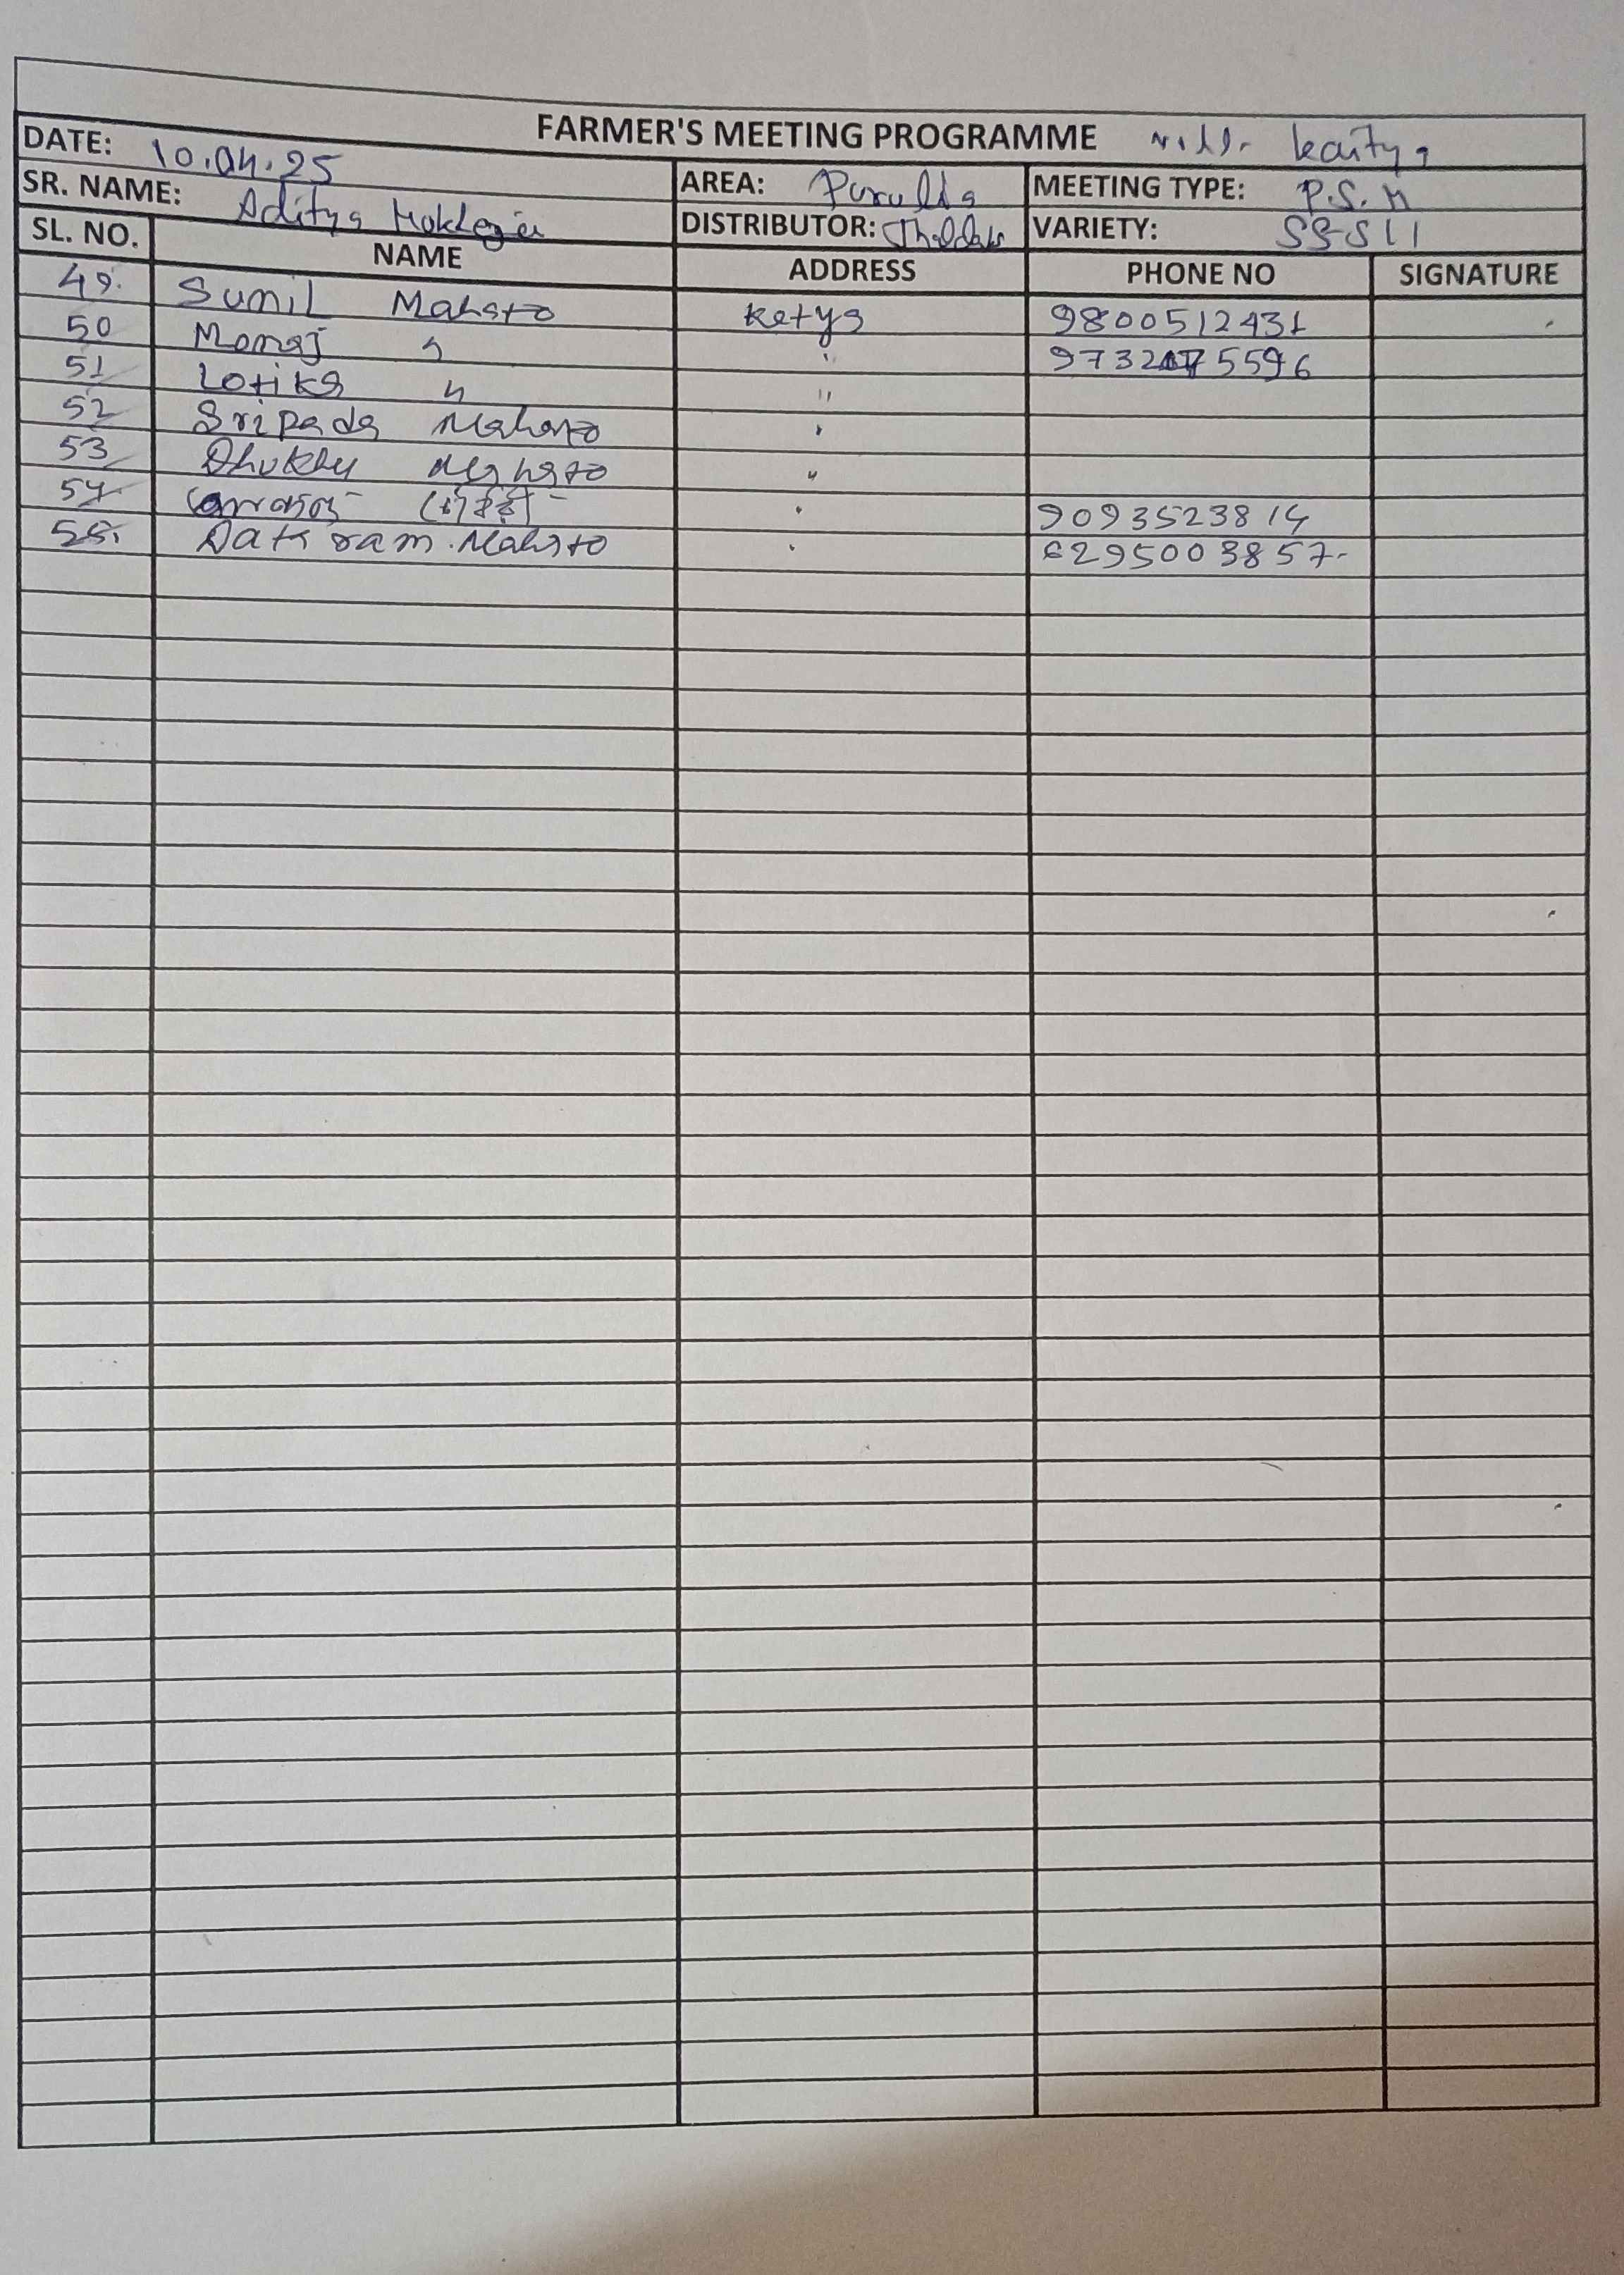 FARMER'S MEETING PROGRAMME Vill- kaitya
DATE: 10.04.25
SR. NAME: Aditya Mukherjee
AREA: Purulia MEETING TYPE: P.S.M
DISTRIBUTOR: Jhalda VARIETY: SS-511
SL. NO. NAME ADDRESS PHONE NO SIGNATURE
49. Sunil Mahato ketya 9800512431
50 Monoj " " 
51 Lotika " "
52 Sripada Mahato "
53 Dhukhu Mahato "
54. " 9093523814
55. Dataram Mahato " 6295003857